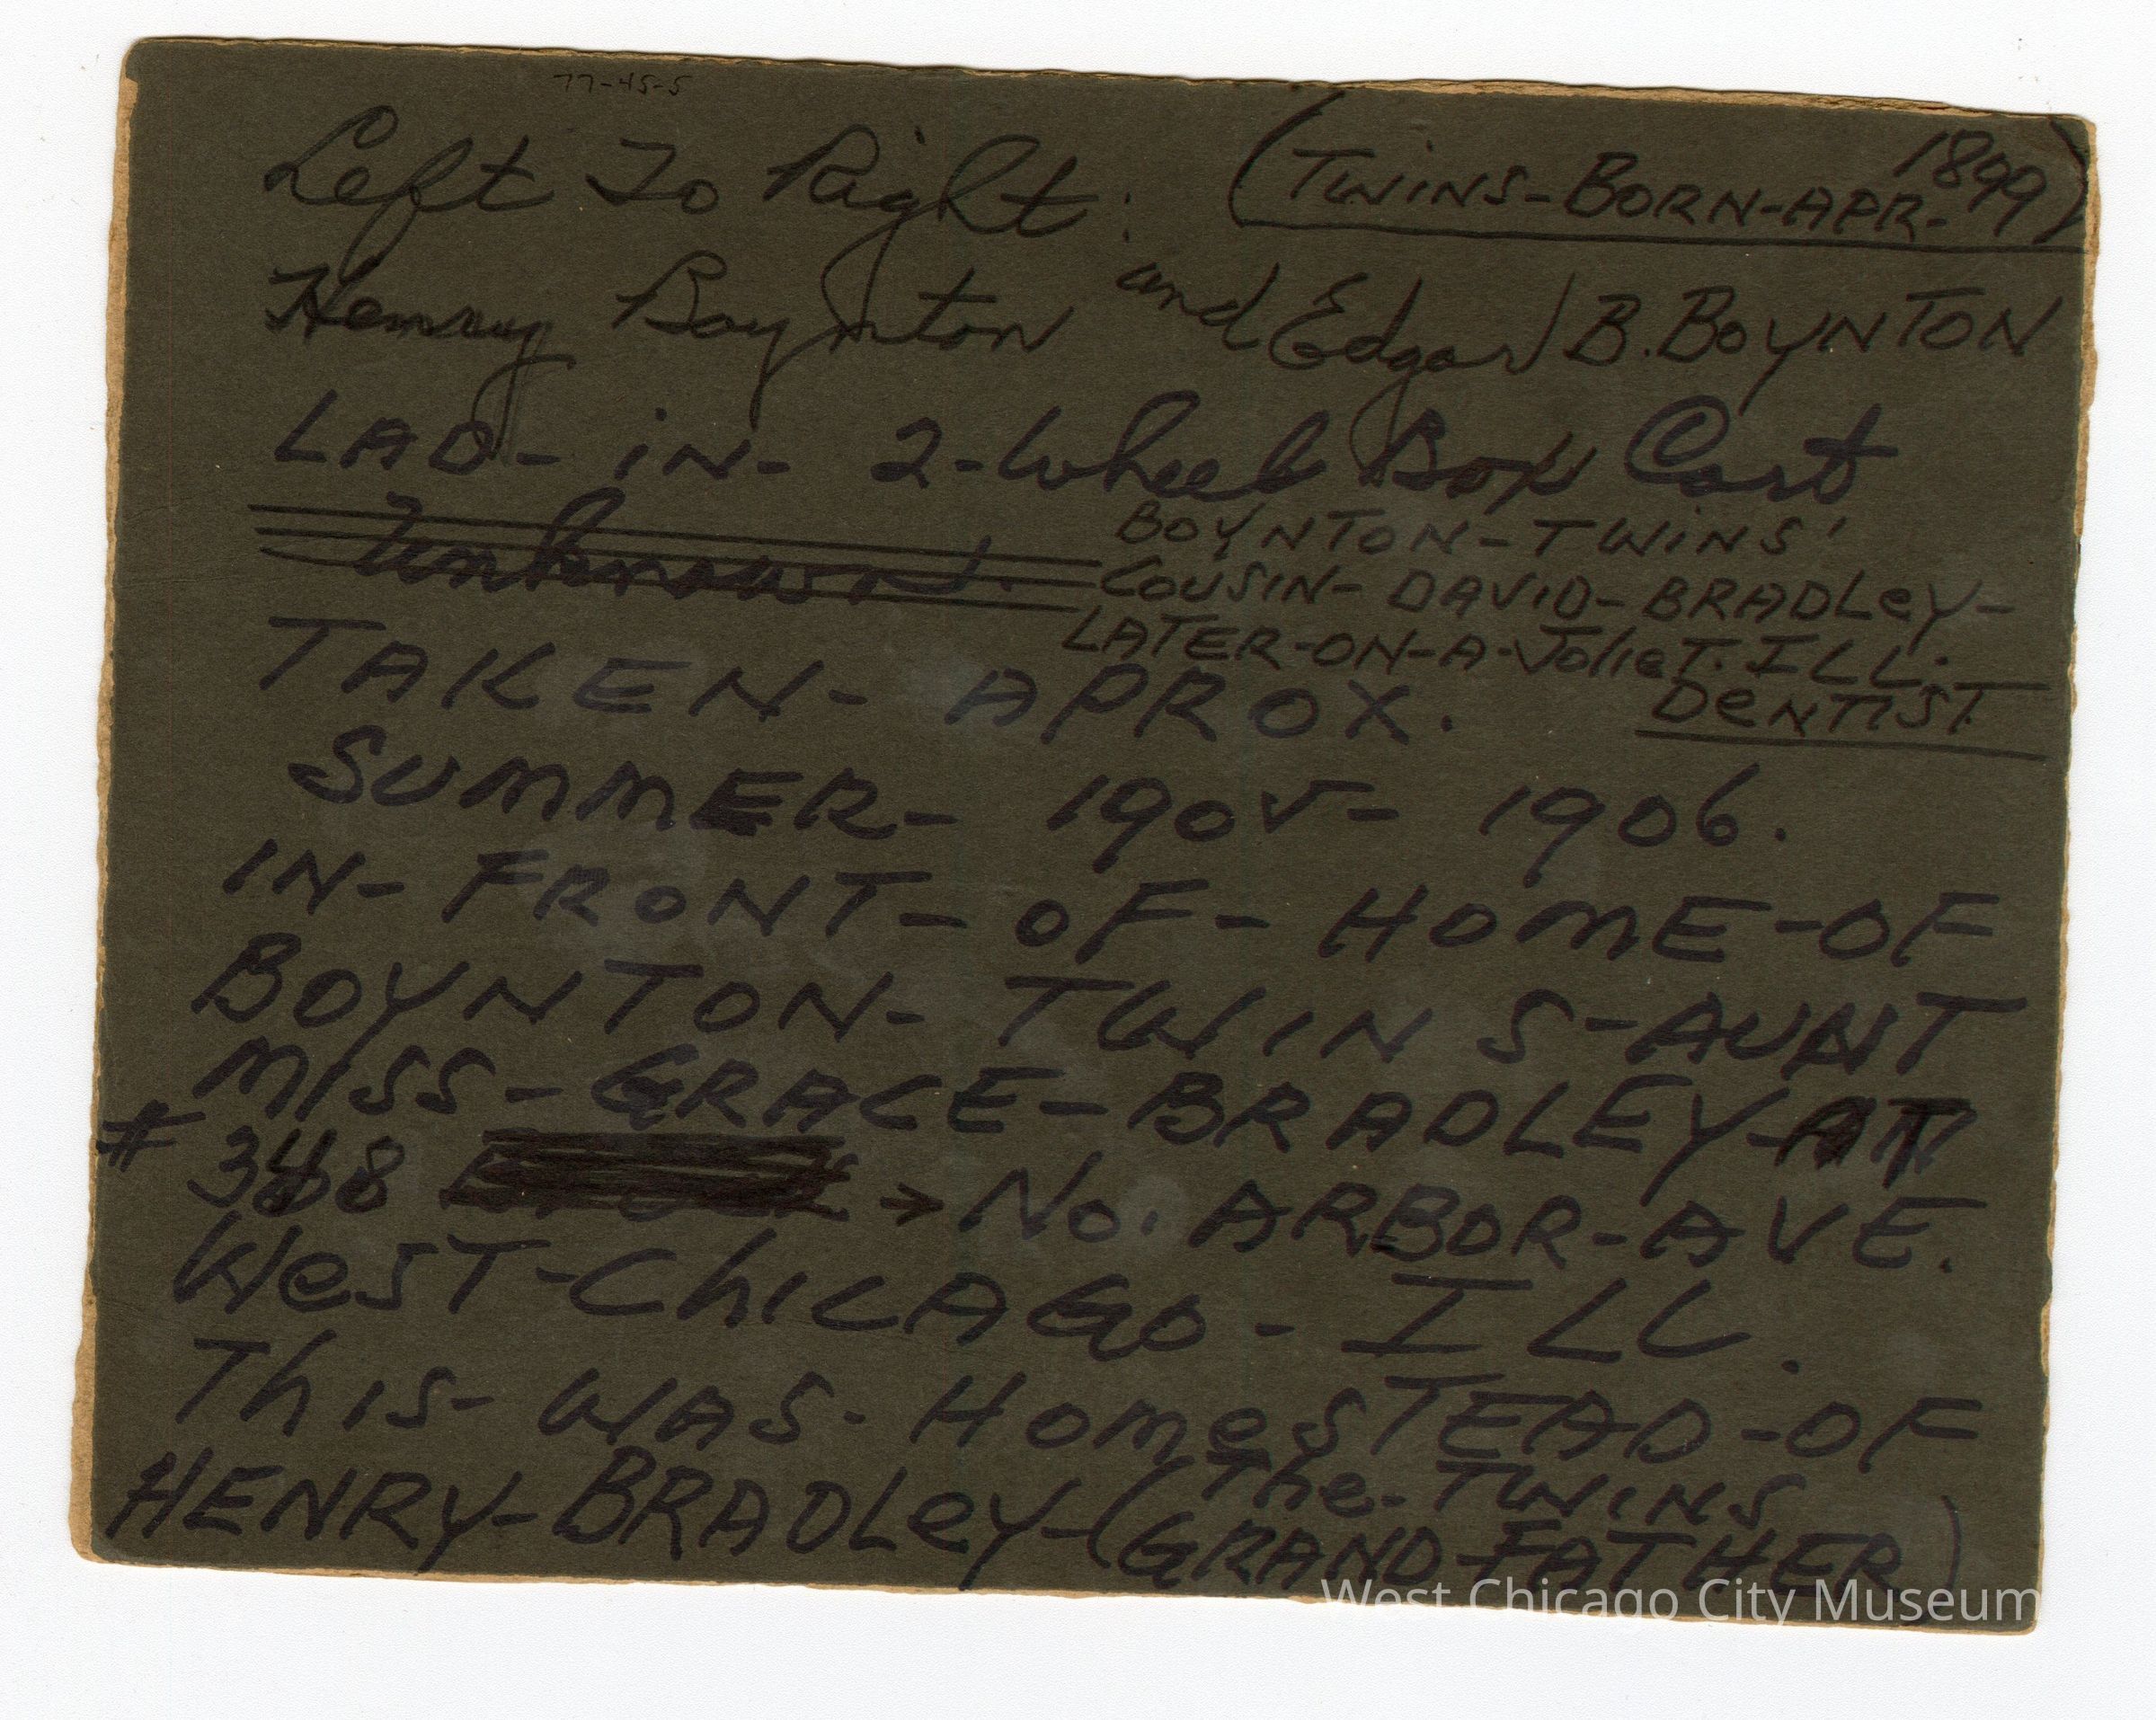 77-45-5
Left To Right: (TWINS-BORN-APR. 1899)
Henry Boynton and Edgar B. BOYNTON
LAD- IN- 2-Wheel Box Cart
Unknown. BOYNTON-TWINS'
COUSIN-DAVID-BRADLeY-
LATER-ON-A-JolieT. ILL.
DeNTIST.
TAKEN- APROX.
SUMMER- 1905- 1906.
IN- FRONT- OF- HOME-OF
BOYNTON- TWINS-AUNT
MISS- GRACE-BRADLEY-AT
# 348 → No. ARBOR-AVE.
WeST-ChICAGO- ILL.
ThIS- WAS- HomeSTEAD-OF
HENRY-BRADLeY-(The-TWINS
GRAND-FATHER)
West Chicago City Museum